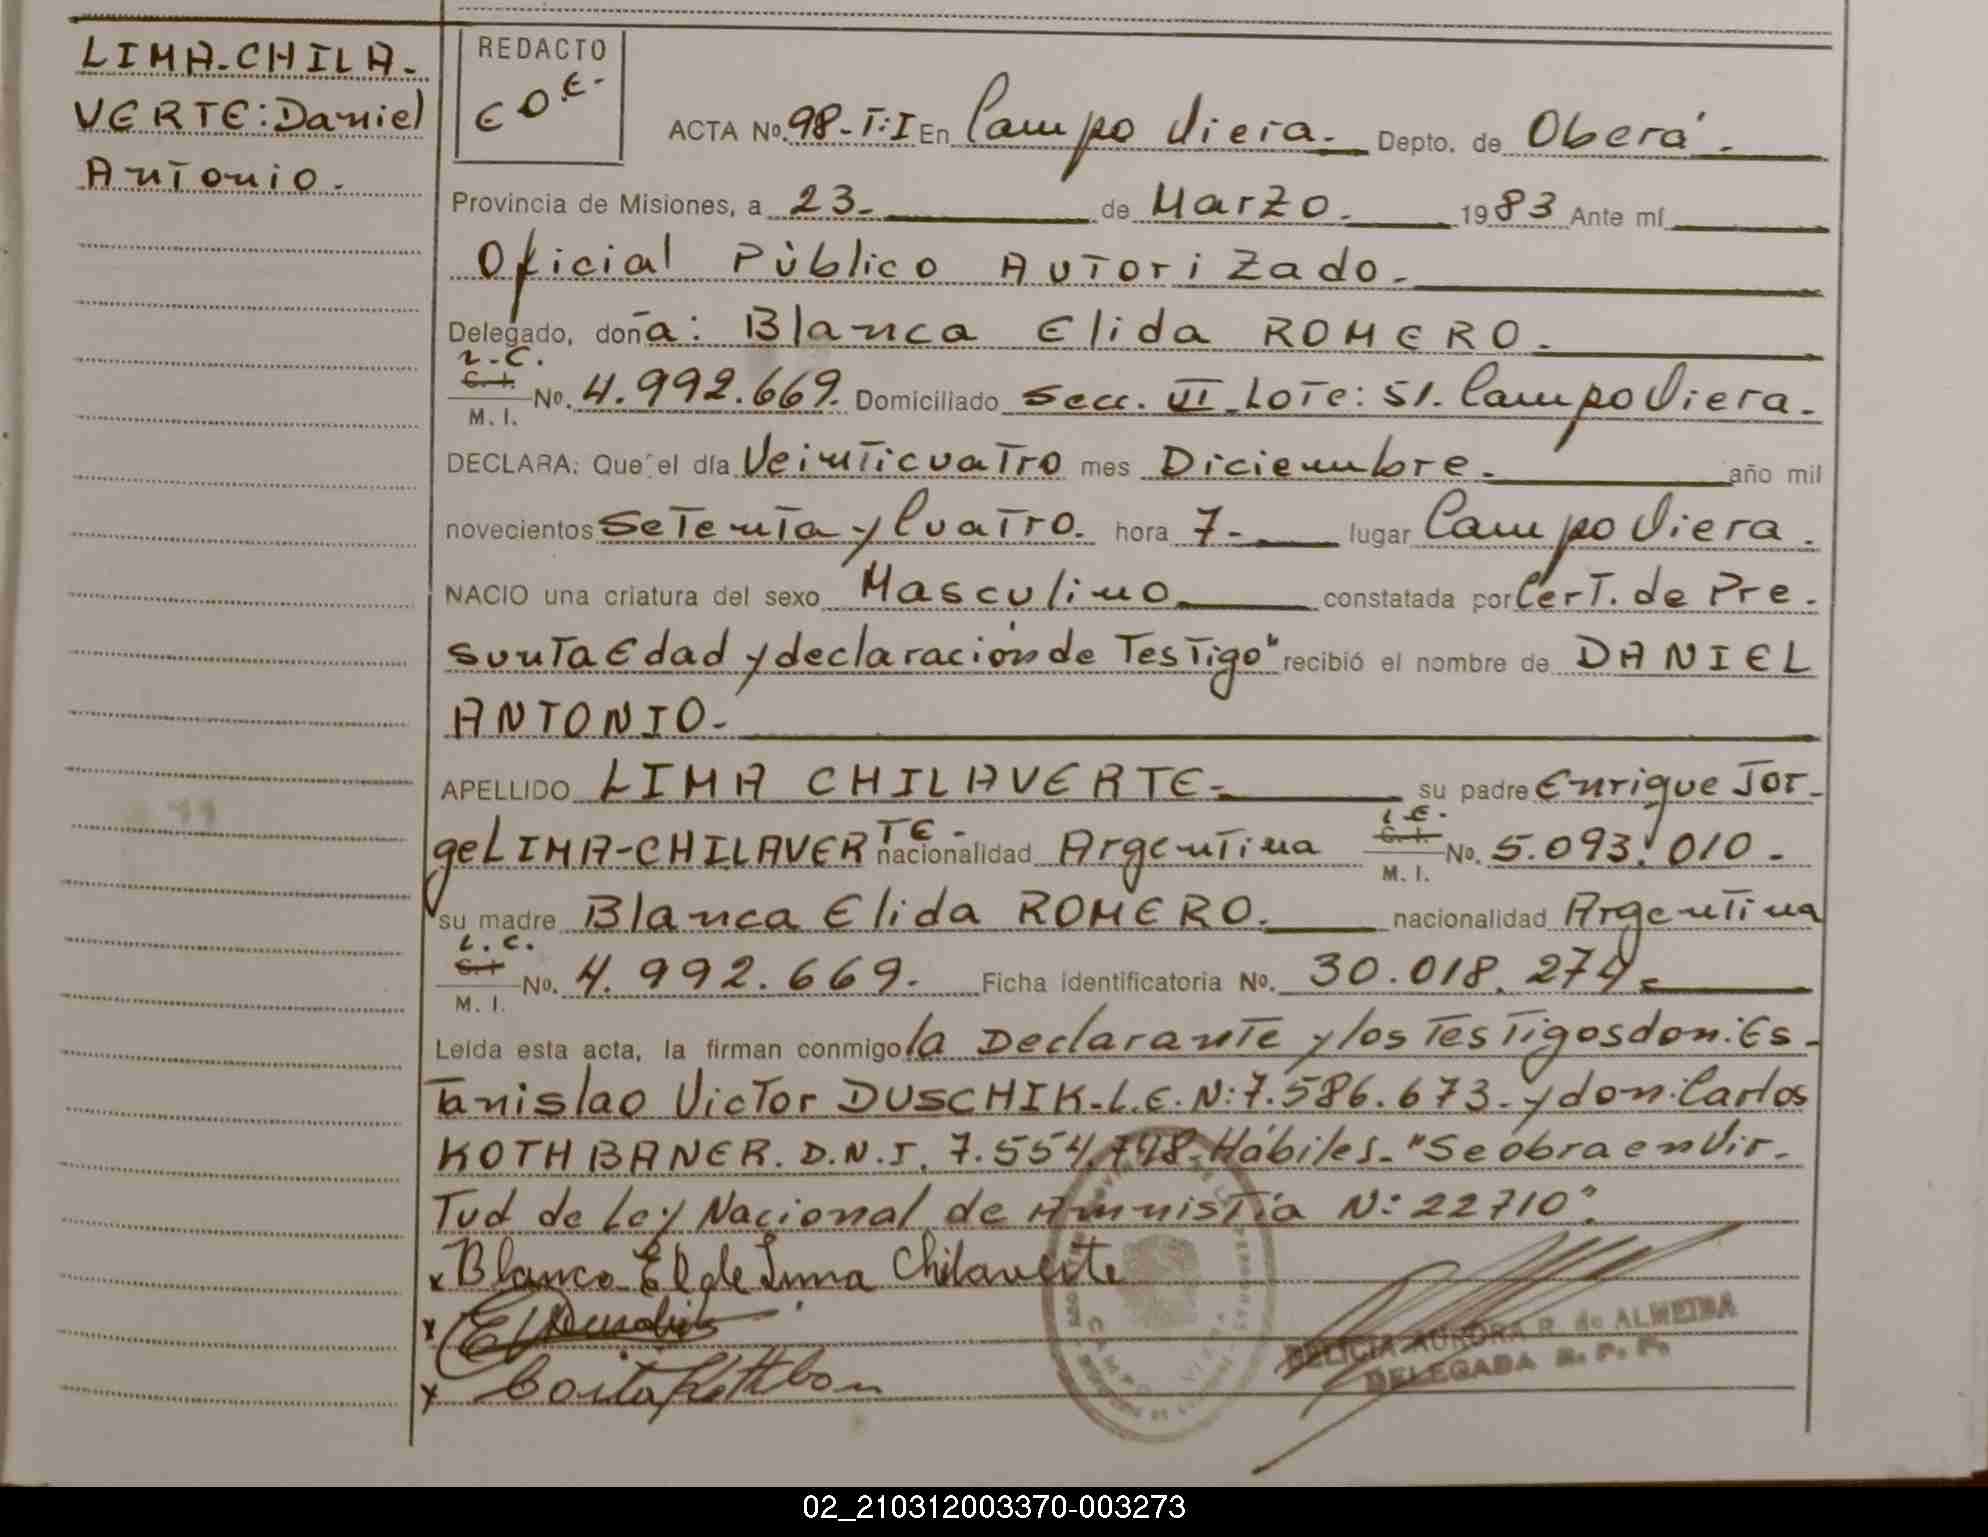 LIMA-CHILA-
VERTE: Daniel
Antonio.
REDACTO
E D E.
ACTA No. 98-T:I En Campo Viera. Depto. de Oberá.
Provincia de Misiones, a 23. de Marzo. 1983 Ante mí
Oficial Público Autorizado.
Delegado, doña: Blanca Elida ROMERO.
L.C.
C.I. No. 4.992.669. Domiciliado Secc. VI Lote: 51. Campo Viera.
M. I.
DECLARA: Que el día Veinticuatro mes Diciembre. año mil
novecientos Setenta y Cuatro. hora 7. lugar Campo Viera.
NACIO una criatura del sexo Masculino constatada por Cert. de Pre.
sunta Edad y declaración de Testigos recibió el nombre de DANIEL
ANTONIO.
APELLIDO LIMA CHILAVERTE. su padre Enrique Jor-
L.E.
ge LIMA-CHILAVERTE. nacionalidad Argentina C.I. No. 5.093.010.
M. I.
su madre Blanca Elida ROMERO. nacionalidad Argentina
L.C.
C.I. No. 4.992.669. Ficha identificatoria No. 30.018.274.
M. I.
Leída esta acta, la firman conmigo la Declarante y los Testigos don: Es-
tanislao Victor DUSCHIK-L.E.N: 7.586.673. y don: Carlos
KOTHBANER. D.N.I. 7.554.798-Hábiles. "Se obra en Vir-
tud de Ley Nacional de Amnistía N: 22710".
x Blanca El de Lima Chilaverte
x
x
CAMPO VIERA
DELICIA AURORA R. de ALMEIDA
DELEGADA R. P. P.
02_210312003370-003273